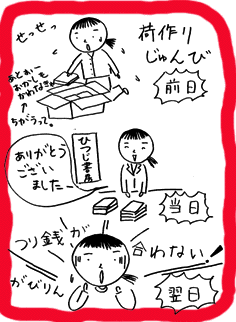 荷作り
じゅんび
前日
せっせっ
あとぉー
おかしも
かわなきゃ
ちがうって。
ひつじ書房
ありがとう
ござい
ました
当日
つり銭が
合わない!
がびりん
翌日